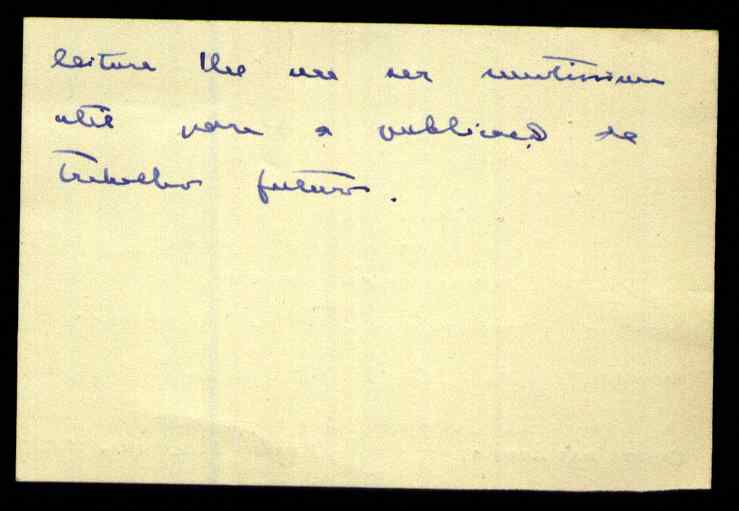 leitura lhe vae ser muitissimo
util para a publicação de
trabalhos futuros.